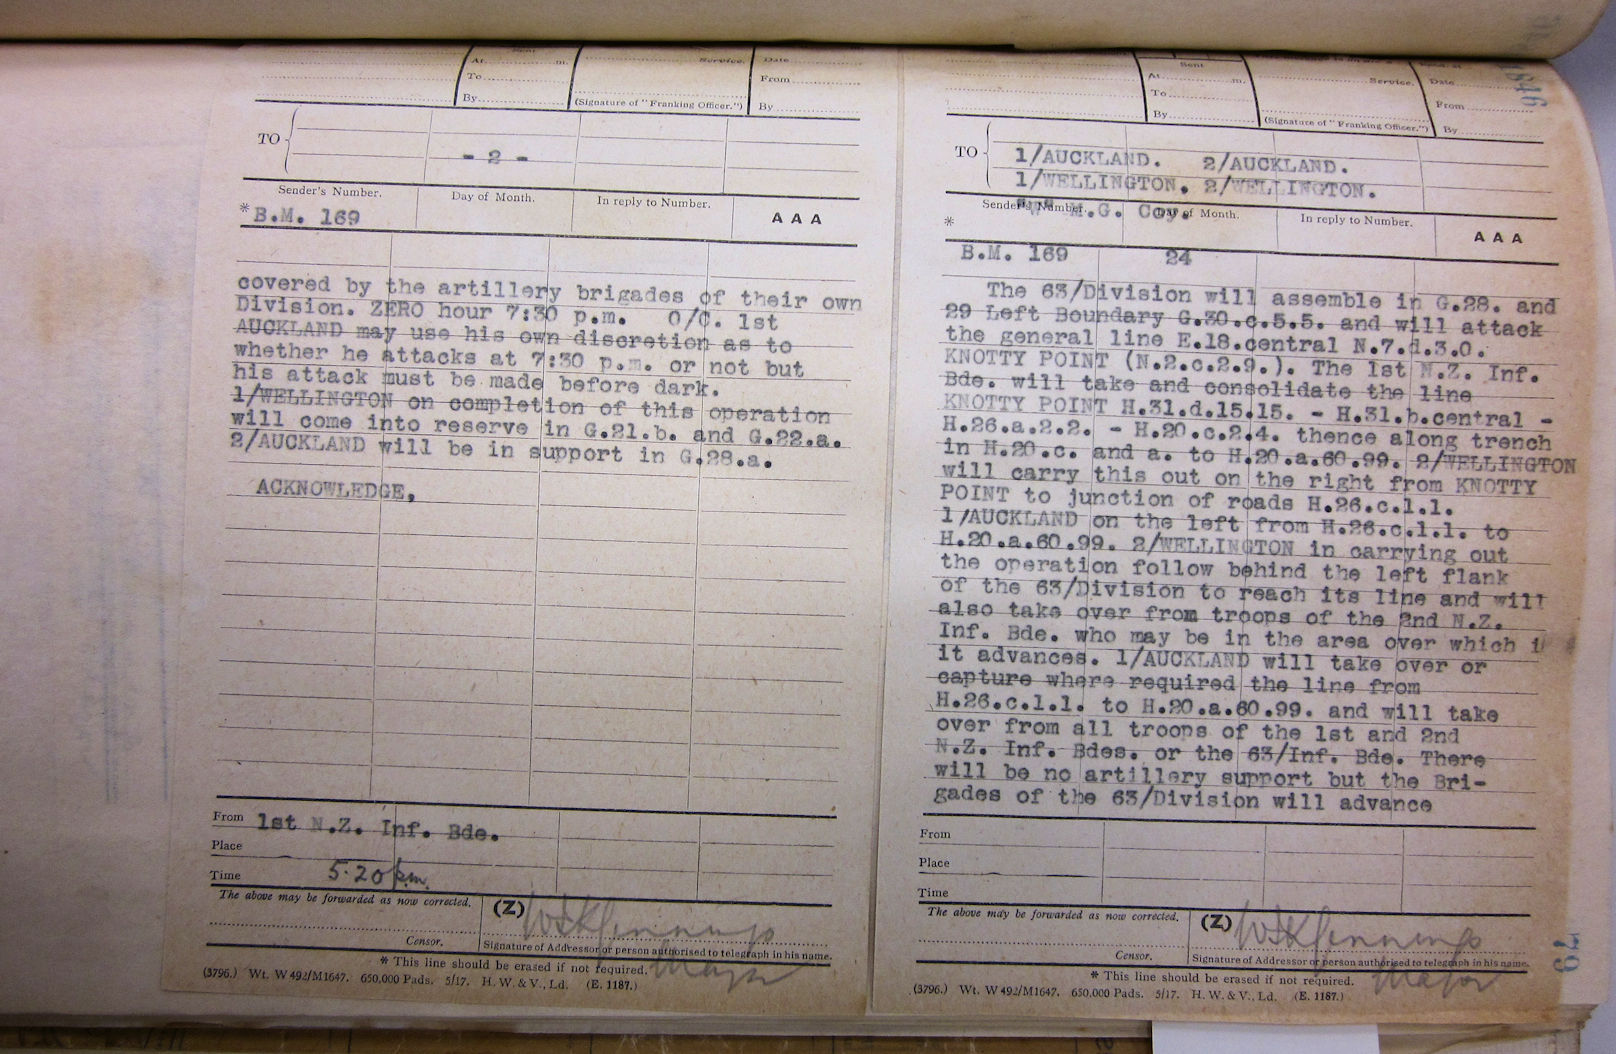 Sent
At m. Service. Date
To From
By (Signature of "Franking Officer.") By
TO
- 2 -
Sender's Number. Day of Month. In reply to Number. A A A
* B.M. 169
covered by the artillery brigades of their own
Division. ZERO hour 7:30 p.m. O/C. 1st
AUCKLAND may use his own discretion as to
whether he attacks at 7:30 p.m. or not but
his attack must be made before dark.
1/WELLINGTON on completion of this operation
will come into reserve in G.21.b. and G.22.a.
2/AUCKLAND will be in support in G.28.a.
ACKNOWLEDGE,
From 1st N.Z. Inf. Bde.
Place
Time 5.20 pm.
The above may be forwarded as now corrected. (Z) WSKJennings
Censor. Signature of Addressor or person authorised to telegraph in his name.
* This line should be erased if not required. Major
(3796.) Wt. W 492/M1647. 650,000 Pads. 5/17. H. W. & V., Ld. (E. 1187.)
1846
Sent
At m. Service. Date
To From
By (Signature of "Franking Officer.") By
TO 1/AUCKLAND. 2/AUCKLAND.
1/WELLINGTON. 2/WELLINGTON.
"W" M.G. Coy.
Sender's Number. Day of Month. In reply to Number. A A A
*
B.M. 169 24
The 63/Division will assemble in G.28. and
29 Left Boundary G.30.c.5.5. and will attack
the general line E.18.central N.7.d.3.0.
KNOTTY POINT (N.2.c.2.9.). The 1st N.Z. Inf.
Bde. will take and consolidate the line
KNOTTY POINT H.31.d.15.15. - H.31.b.central -
H.26.a.2.2. - H.20.c.2.4. thence along trench
in H.20.c. and a. to H.20.a.60.99. 2/WELLINGTON
will carry this out on the right from KNOTTY
POINT to junction of roads H.26.c.1.1.
1/AUCKLAND on the left from H.26.c.1.1. to
H.20.a.60.99. 2/WELLINGTON in carrying out
the operation follow behind the left flank
of the 63/Division to reach its line and will
also take over from troops of the 2nd N.Z.
Inf. Bde. who may be in the area over which i
it advances. 1/AUCKLAND will take over or
capture where required the line from
H.26.c.1.1. to H.20.a.60.99. and will take
over from all troops of the 1st and 2nd
N.Z. Inf. Bdes. or the 63/Inf. Bde. There
will be no artillery support but the Bri-
gades of the 63/Division will advance
From
Place
Time
The above may be forwarded as now corrected. (Z) WSKJennings
Censor. Signature of Addressor or person authorised to telegraph in his name.
* This line should be erased if not required. Major
(3796.) Wt. W 492/M1647. 650,000 Pads. 5/17. H. W. & V., Ld. (E. 1187.)
79